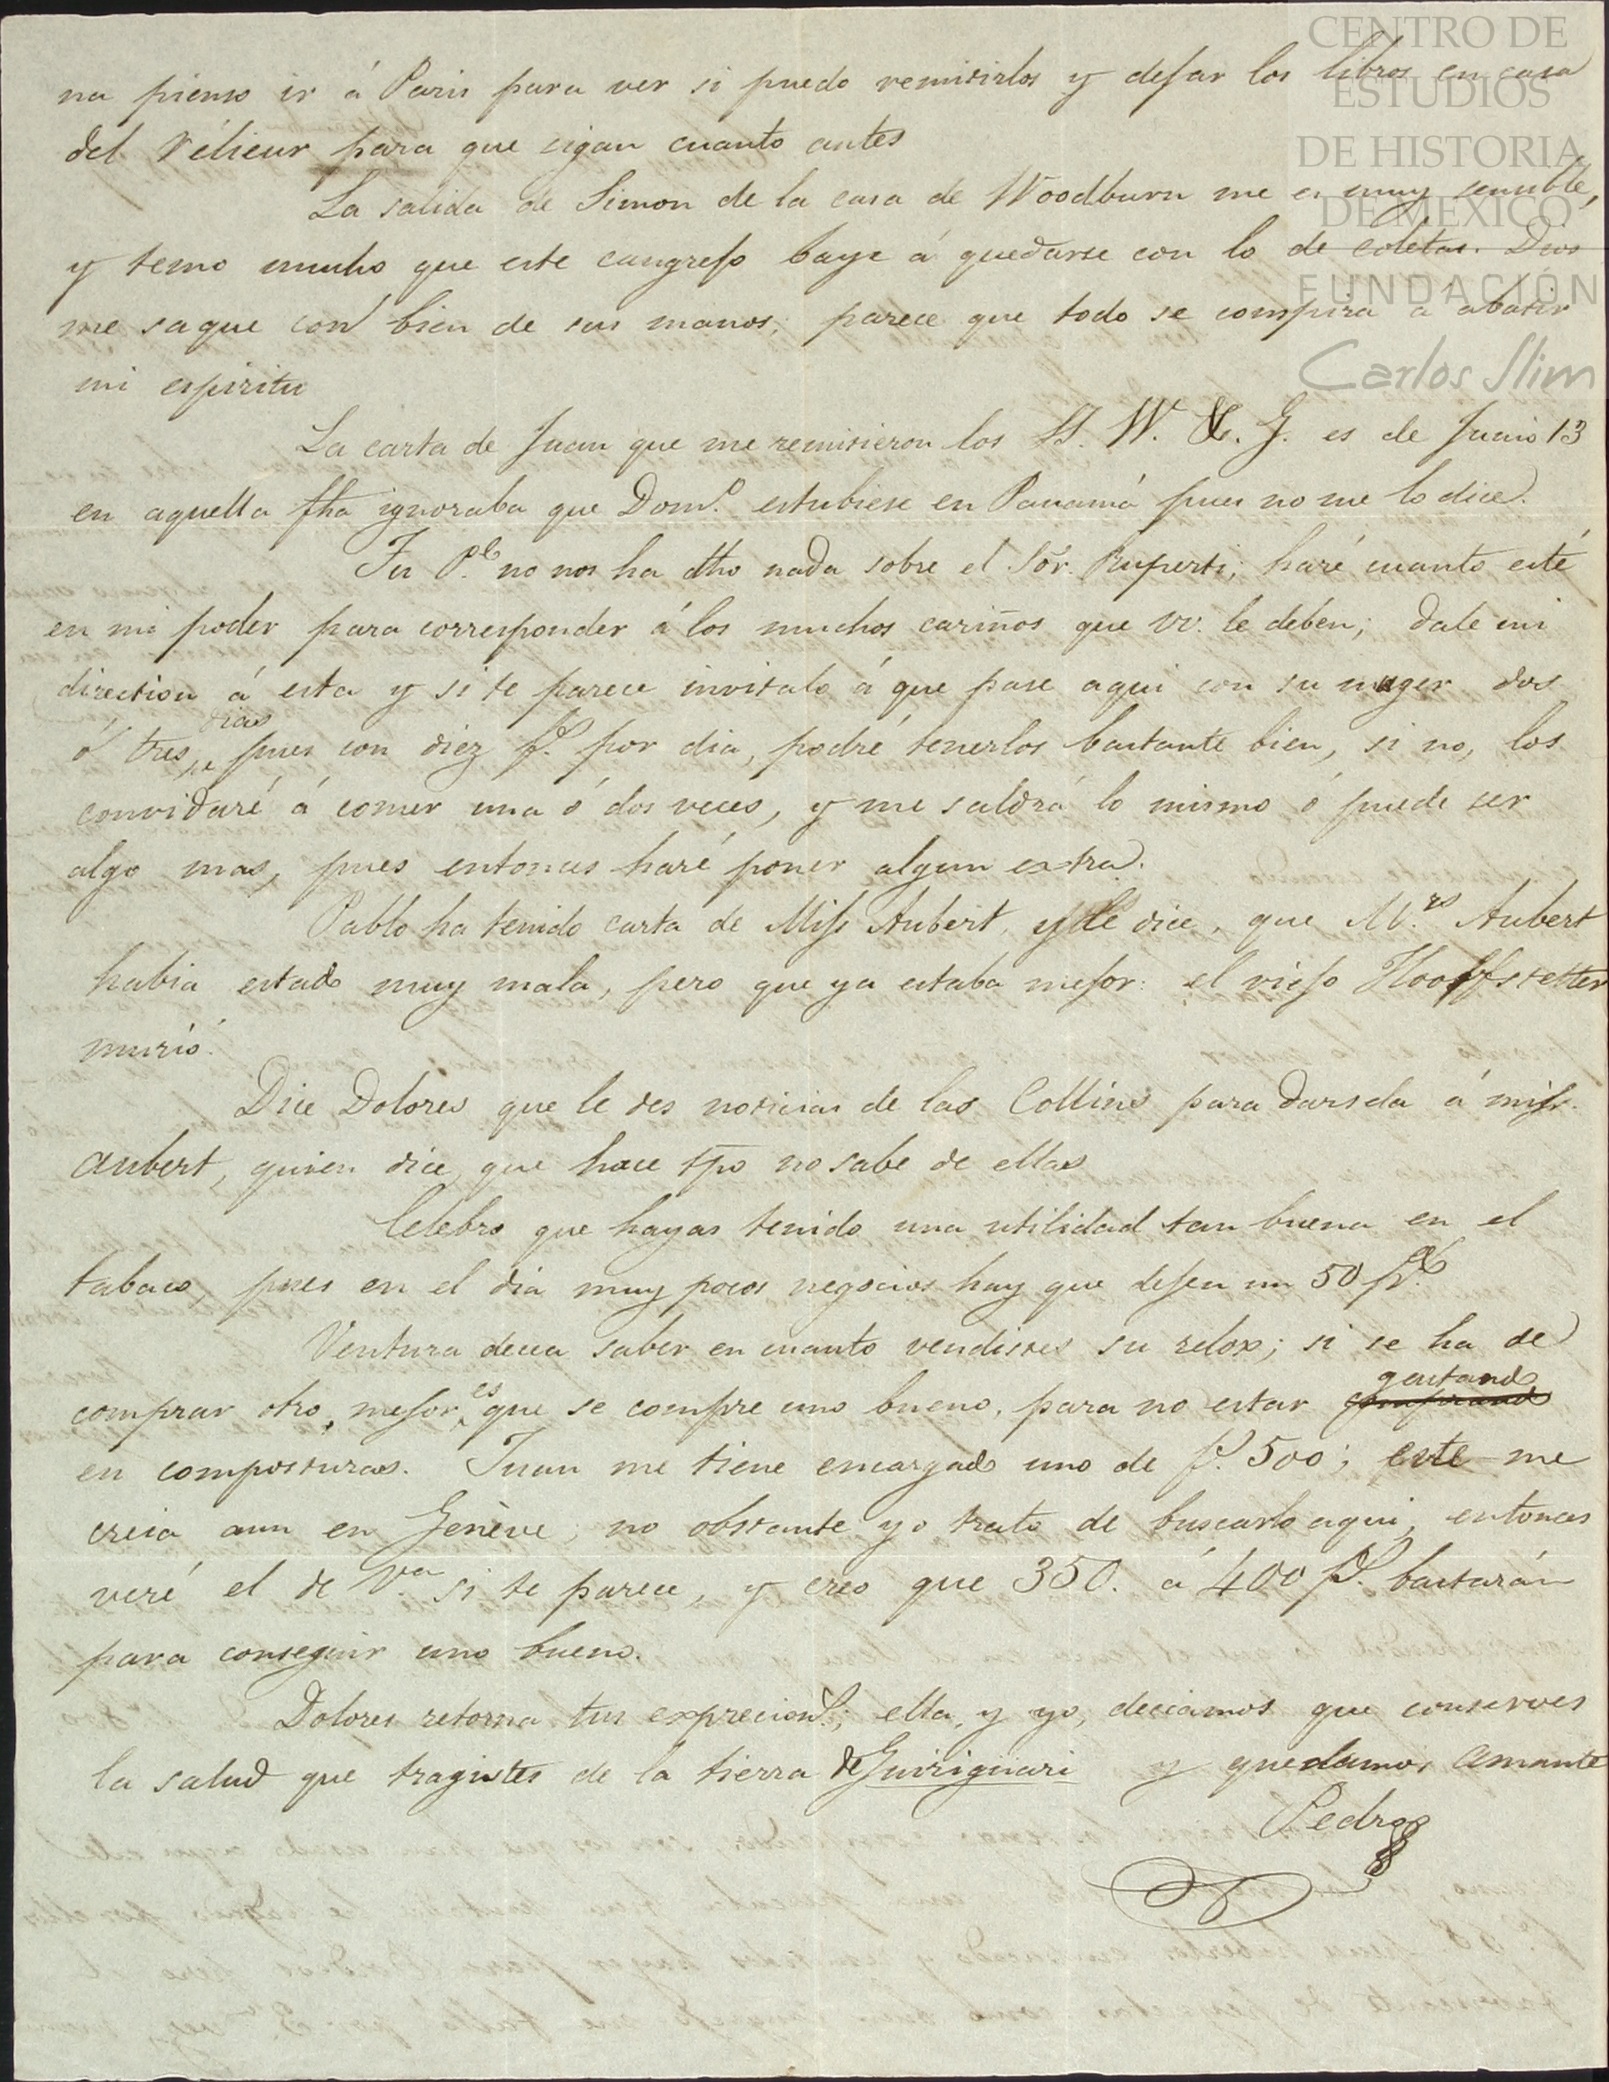 CENTRO DE
ESTUDIOS
DE HISTORIA
DE MEXICO
FUNDACIÓN
Carlos Slim
na pienso ir á Paris para ver si puedo remitirlos y dejar los libros en casa
del rélieur para que sigan cuanto antes
La salida de Simon de la casa de Woodburn me es muy sensible,
y temo mucho que este cangrejo baya á quedarse con lo de coletas. Dios
me saque con bien de sus manos; parece que todo se conspira á abatir
mi espiritu
La carta de Juan que me remitieron los SS. W. & G. es de Junio 13
en aquella fha ignoraba que Dom.º estubiese en Panamá pues no me lo dice.
Fr P.e no nos ha dho nada sobre el Sōr. Ruperti; haré cuanto esté
en mi poder para corresponder á los muchos cariños que VV. le deben; dale mi
direction á esta y si te parece invitalo á que pase aqui con su muger dos
ó tres dias pues con diez f.s por dia, podré tenerlos bastante bien, si no, los
convidaré á comer una ó dos veces, y me saldrá lo mismo ó puede ser
algo mas, pues entonces haré poner algun extra.
Pablo ha tenido carta de Miss Aubert, y le dice, que M.rs Aubert
habia estado muy mala, pero que ya estaba mejor: el viejo Hooffstetter
murió.
Dice Dolores que le des noticias de las Collins para darsela á miss.
Aubert, quien dice que hace tpo no sabe de ellas
Celebro que hayas tenido una utilidad tan buena en el
tabaco, pues en el dia muy pocos negocios hay que dejen un 50 p%
Ventura decea saber en cuanto vendistes su relox; si se ha de
comprar otro, mejor es que se compre uno bueno, para no estar comprando gastando
en composturas. Juan me tiene encargado uno de f.s 500; este me
creia aun en Genève, no obstante yo trato de buscarlo aqui, entonces
veré el de V.ra si te parece, y creo que 350. á 400 f.s bastarán
para conseguir uno bueno.
Dolores retorna tus exprecion.s; ella, y yo, deceamos que conserves
la salud que tragistes de la tierra de Guirigüari y quedamos amante
Pedro